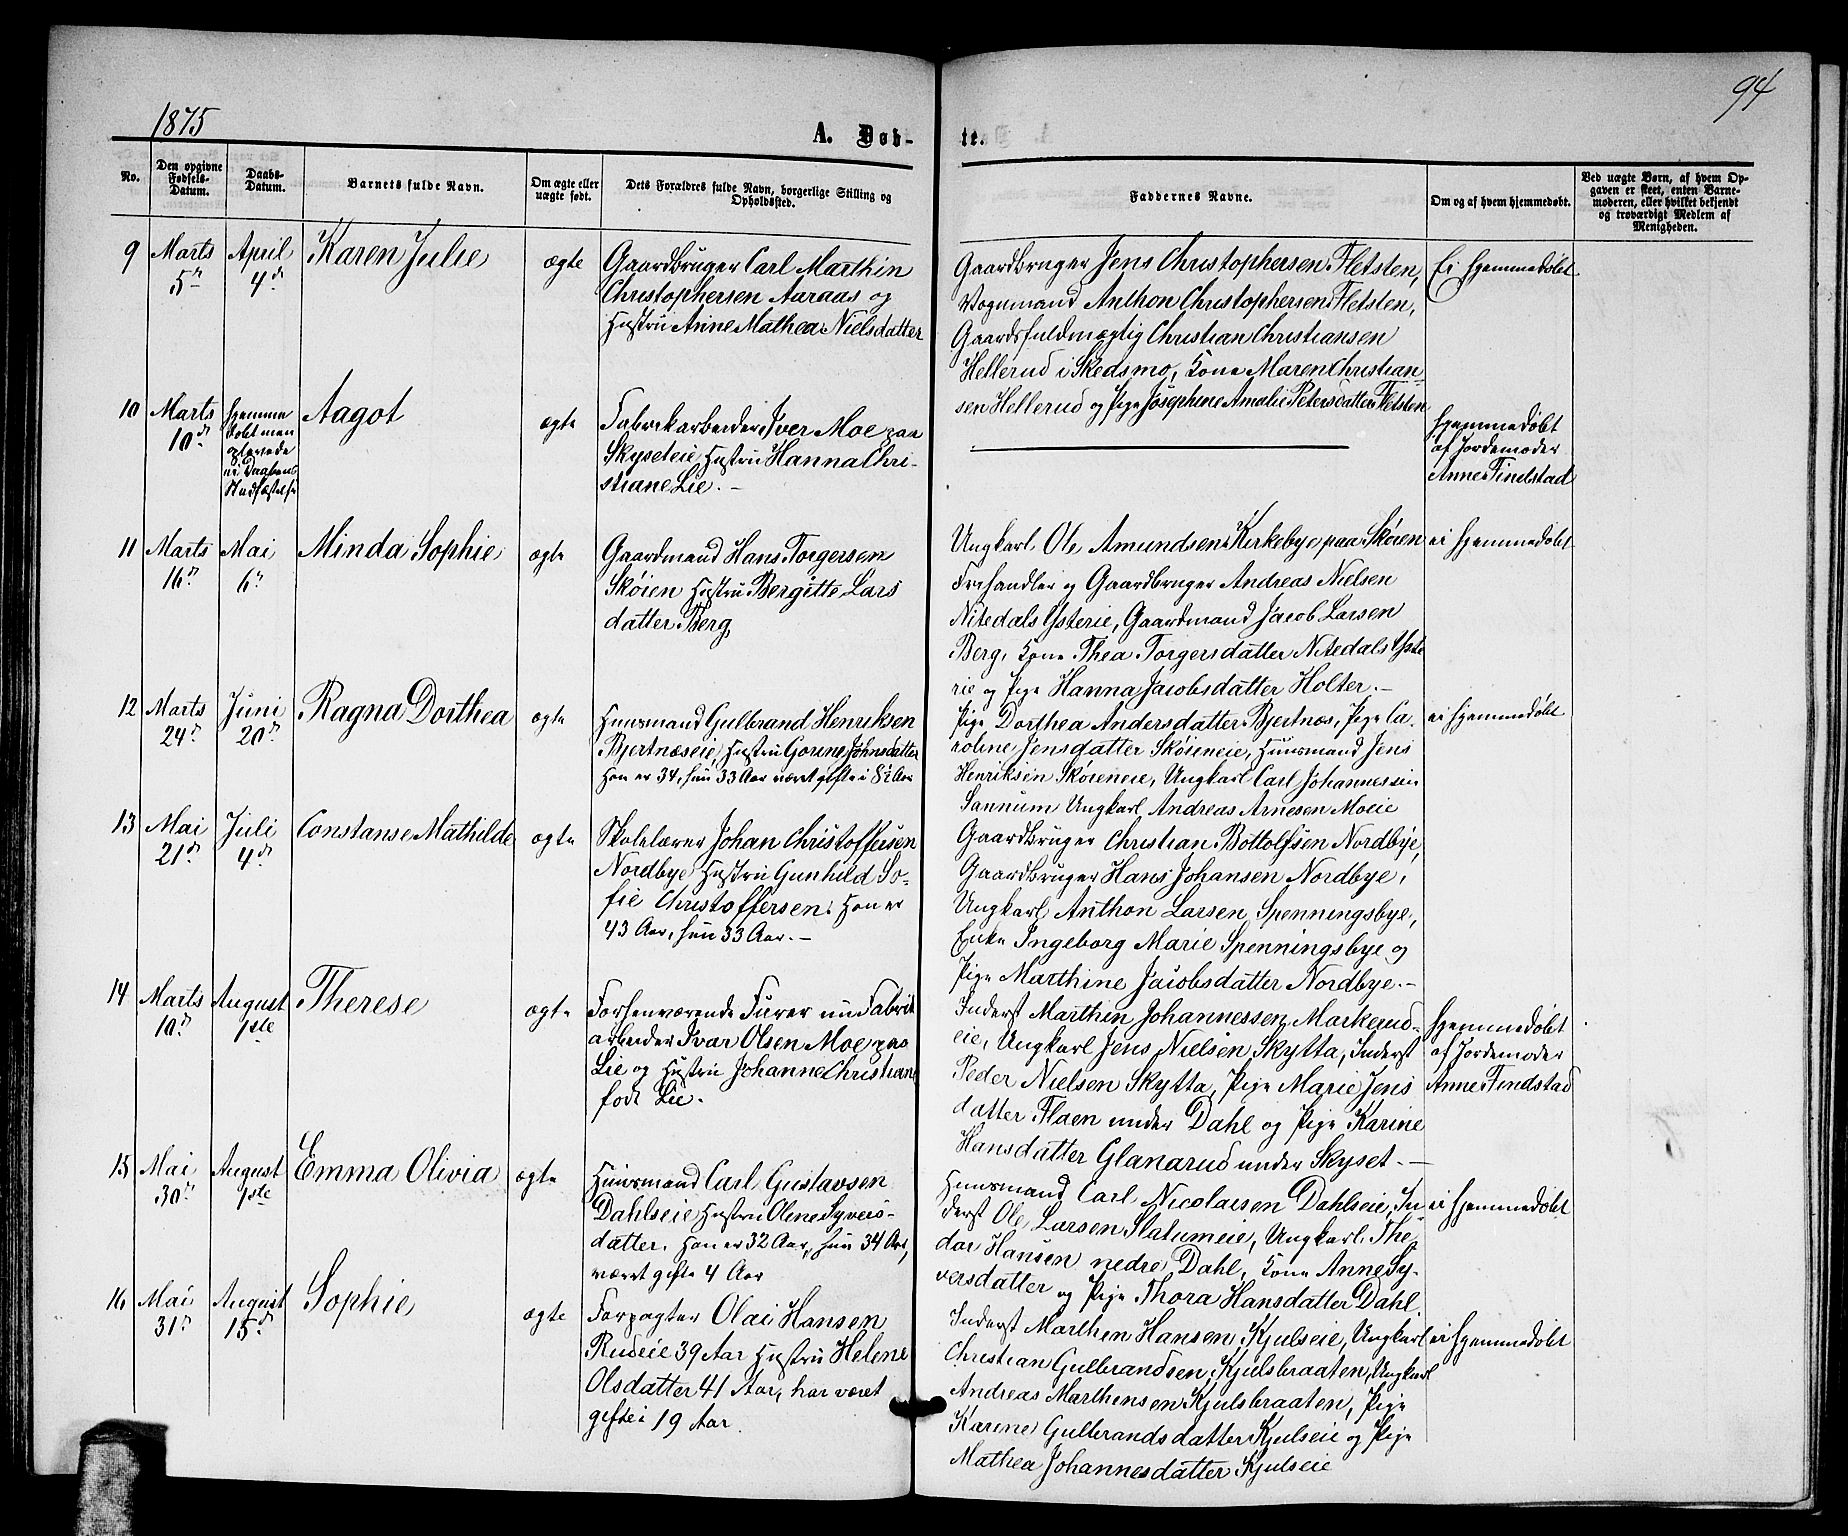 1875
94
A. Døb-
te.
No.
Den opgivne Fødsels-Datum.
Daabs-Datum.
Barnets fulde Navn.
Om ægte eller uægte født.
Dets Forældres fulde Navn, borgerlige Stilling og Opholdssted.
Faddernes Navne.
Om og af hvem hjemmedøbt.
Ved uægte Børn, af hvem Opgaven er skeet, enten Barnemoderen, eller hvilket bekjendt og troværdigt Medlem af Menigheden.
9
Marts 5te
April 4de
Karen Julie
ægte
Gaardbruger Carl Marthin
Christophersen Aaraas og
Hustru Anne Mathea Nielsdatter
Gaardbruger Jens Christophersen Fletsten,
Vognmand Anthon Christophersen Fletsten,
Gaardsfuldmægtig Christian Christiansen
Hellerud i Skedsmo, Kone Maren Christian-
sen Hellerud og Pige Josephine Amalie Petersdatter Fletsten
Ei hjemmedøbt
10
Marts 10de
hjemme
døbt men
oplevede
ei Daabens
Stadfæstelse
Aagot
ægte
Fabrikarbeider Iver Moe paa
Skyseteie Hustru Hanna Chri-
stiane Lie.-
hjemmedøbt
af Jordemoder
Anne Findstad
11
Marts 16de
Mai 6te
Minda Sophie
ægte
Gaardmand Hans Torgersen
Skøien Hustru Bergitte Lars
datter Berg
Ungkarl Ole Amundsen Kirkebye paa Skøien
Frehandler og Gaardbruger Andreas Nielsen
Nitedals Ysterie, Gaardmand Jacob Larsen
Berg, Kone Thea Torgersdatter Nitedals Yste
rie og Pige Hanna Jacobsdatter Holter.-
ei hjemmedøbt
12
Marts 24de
Juni 20de
Ragna Dorthea
ægte
Huusmand Gulbrand Henriksen
Bjertnæseie, Hustru Gorine Johnsdatter
Han er 34, hun 33 Aar været gifte i 8½ Aar
Pige Dorthea Andersdatter Bjertnæs, Pige Ca-
roline Jensdatter Skøieneie, Huusmand Jens
Henriksen Skøieneie, Ungkarl Carl Johannessen
Sannum Ungkarl Andreas Arnesen Moeie
ei hjemmedøbt
13
Mai 21de
Juli 4de
Constanse Mathilde
ægte
Skolelærer Johan Christoffersen
Nordbye Hustru Gunhild So-
fie Christoffersen. Han er
43 Aar, hun 33 Aar.-
Gaardbruger Christian Bottolfsen Nordbye,
Gaardbruger Hans Johansen Nordbye,
Ungkarl Anthon Larsen Spenningsbye,
Enke Ingeborg Marie Spenningsbye og
Pige Marthine Jacobsdatter Nordbye.-
14
Marts 10de
August 1ste
Therese
ægte
Forhenværende Furer nu Fabrik
arbeider Ivar Olsen Moe paa
Lie og Hustru Johanne Christiane
født Lie.
Inderst Marthin Johannessen Markerud-
eie, Ungkarl Jens Nielsen Skytta, Inderst
Peder Nielsen Skytta, Pige Marie Jens
datter Flaen under Dahl og Pige Karine
Hansdatter Glanarud under Skyset.-
hjemmedøbt
af Jordemoder
Anne Findstad
15
Mai 30de
August 1ste
Emma Olivia
ægte
Huusmand Carl Gustavsen
Dahlseie Hustru Olene Syvers-
datter. Han er 32 Aar, hun 34 Aar,
været gifte 4 Aar
Huusmand Carl Nicolaisen Dahlseie, In-
derst Ole Larsen Slatumeie, Ungkarl The-
dor Hansen nedre Dahl, Kone Anne Sy-
versdatter og Pige Thora Hansdatter Dahl
ei hjemmedøbt
16
Mai 31de
August 15de
Sophie
ægte
Forpagter Olai Hansen
Rudeie 39 Aar Hustru Helene
Olsdatter 41 Aar, har været
gifte i 19 Aar
Inderst Marthin Hansen Kjulseie, Ungkarl
Christian Gulbrandsen Kjulsbraaten, Ungkarl
Andreas Marthinsen Kjulsbraaten, Pige
Karine Gulbrandsdatter Kjulseie og Pige
Mathea Johannesdatter Kjulseie
ei hjemmedøbt